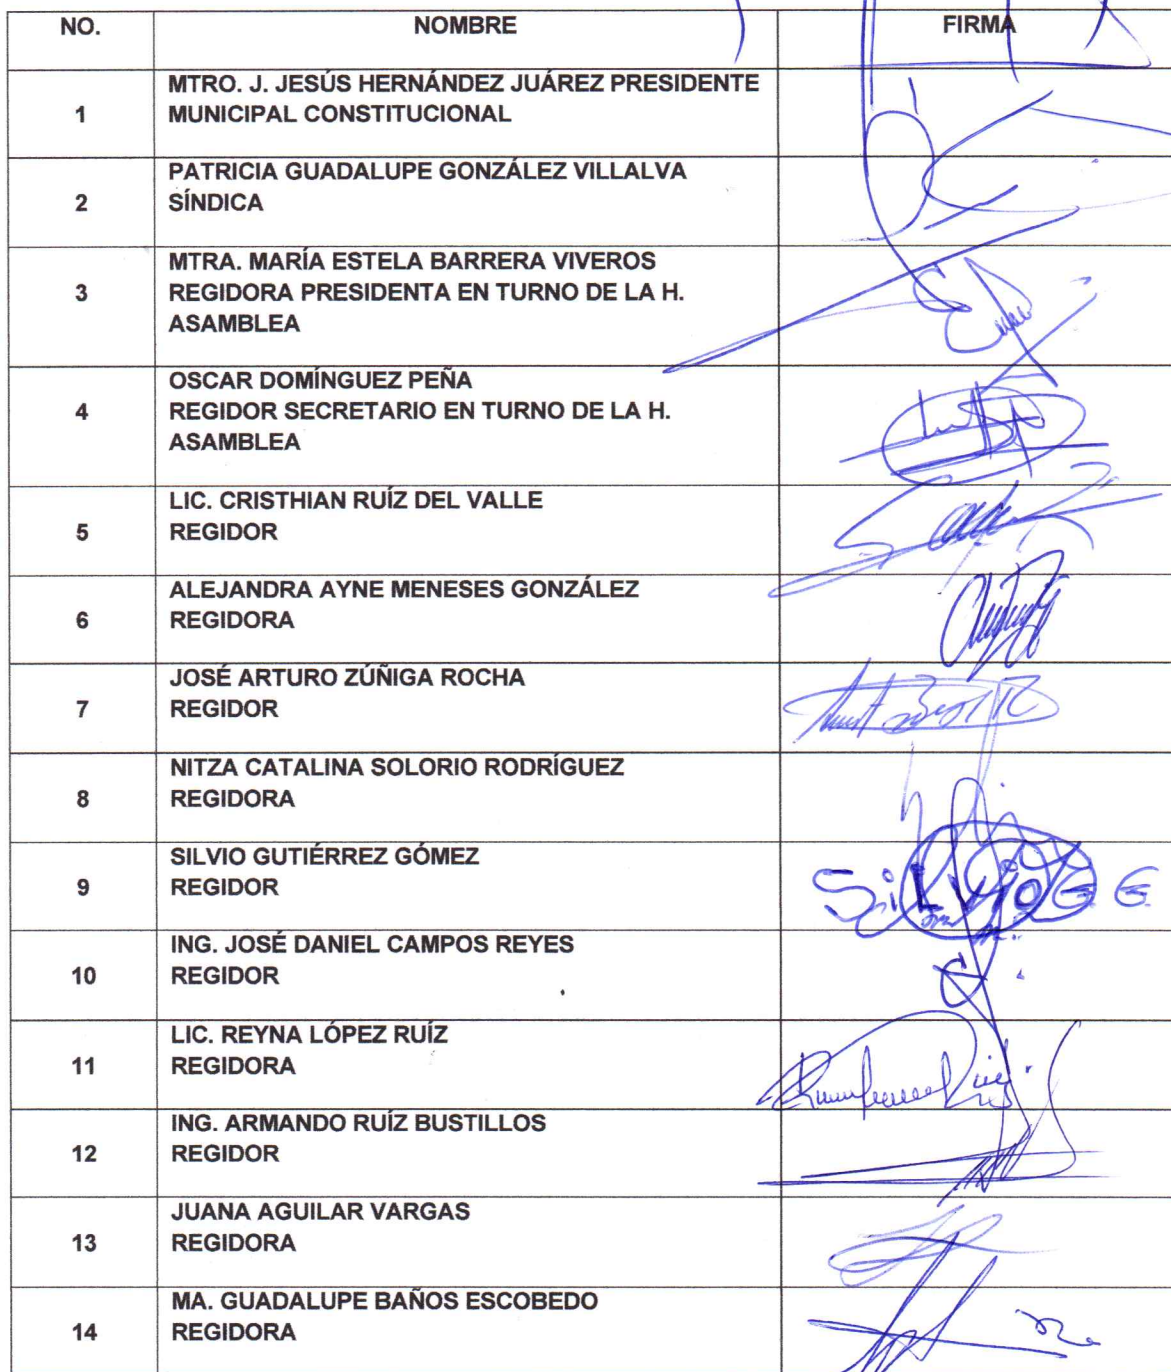 NO. NOMBRE FIRMA
1 MTRO. J. JESÚS HERNÁNDEZ JUÁREZ PRESIDENTE
MUNICIPAL CONSTITUCIONAL
2 PATRICIA GUADALUPE GONZÁLEZ VILLALVA
SÍNDICA
3 MTRA. MARÍA ESTELA BARRERA VIVEROS
REGIDORA PRESIDENTA EN TURNO DE LA H.
ASAMBLEA
4 OSCAR DOMÍNGUEZ PEÑA
REGIDOR SECRETARIO EN TURNO DE LA H.
ASAMBLEA
5 LIC. CRISTHIAN RUÍZ DEL VALLE
REGIDOR
6 ALEJANDRA AYNE MENESES GONZÁLEZ
REGIDORA
7 JOSÉ ARTURO ZÚÑIGA ROCHA
REGIDOR
8 NITZA CATALINA SOLORIO RODRÍGUEZ
REGIDORA
9 SILVIO GUTIÉRREZ GÓMEZ
REGIDOR SiLViO G G
10 ING. JOSÉ DANIEL CAMPOS REYES
REGIDOR
11 LIC. REYNA LÓPEZ RUÍZ
REGIDORA
12 ING. ARMANDO RUÍZ BUSTILLOS
REGIDOR
13 JUANA AGUILAR VARGAS
REGIDORA
14 MA. GUADALUPE BAÑOS ESCOBEDO
REGIDORA